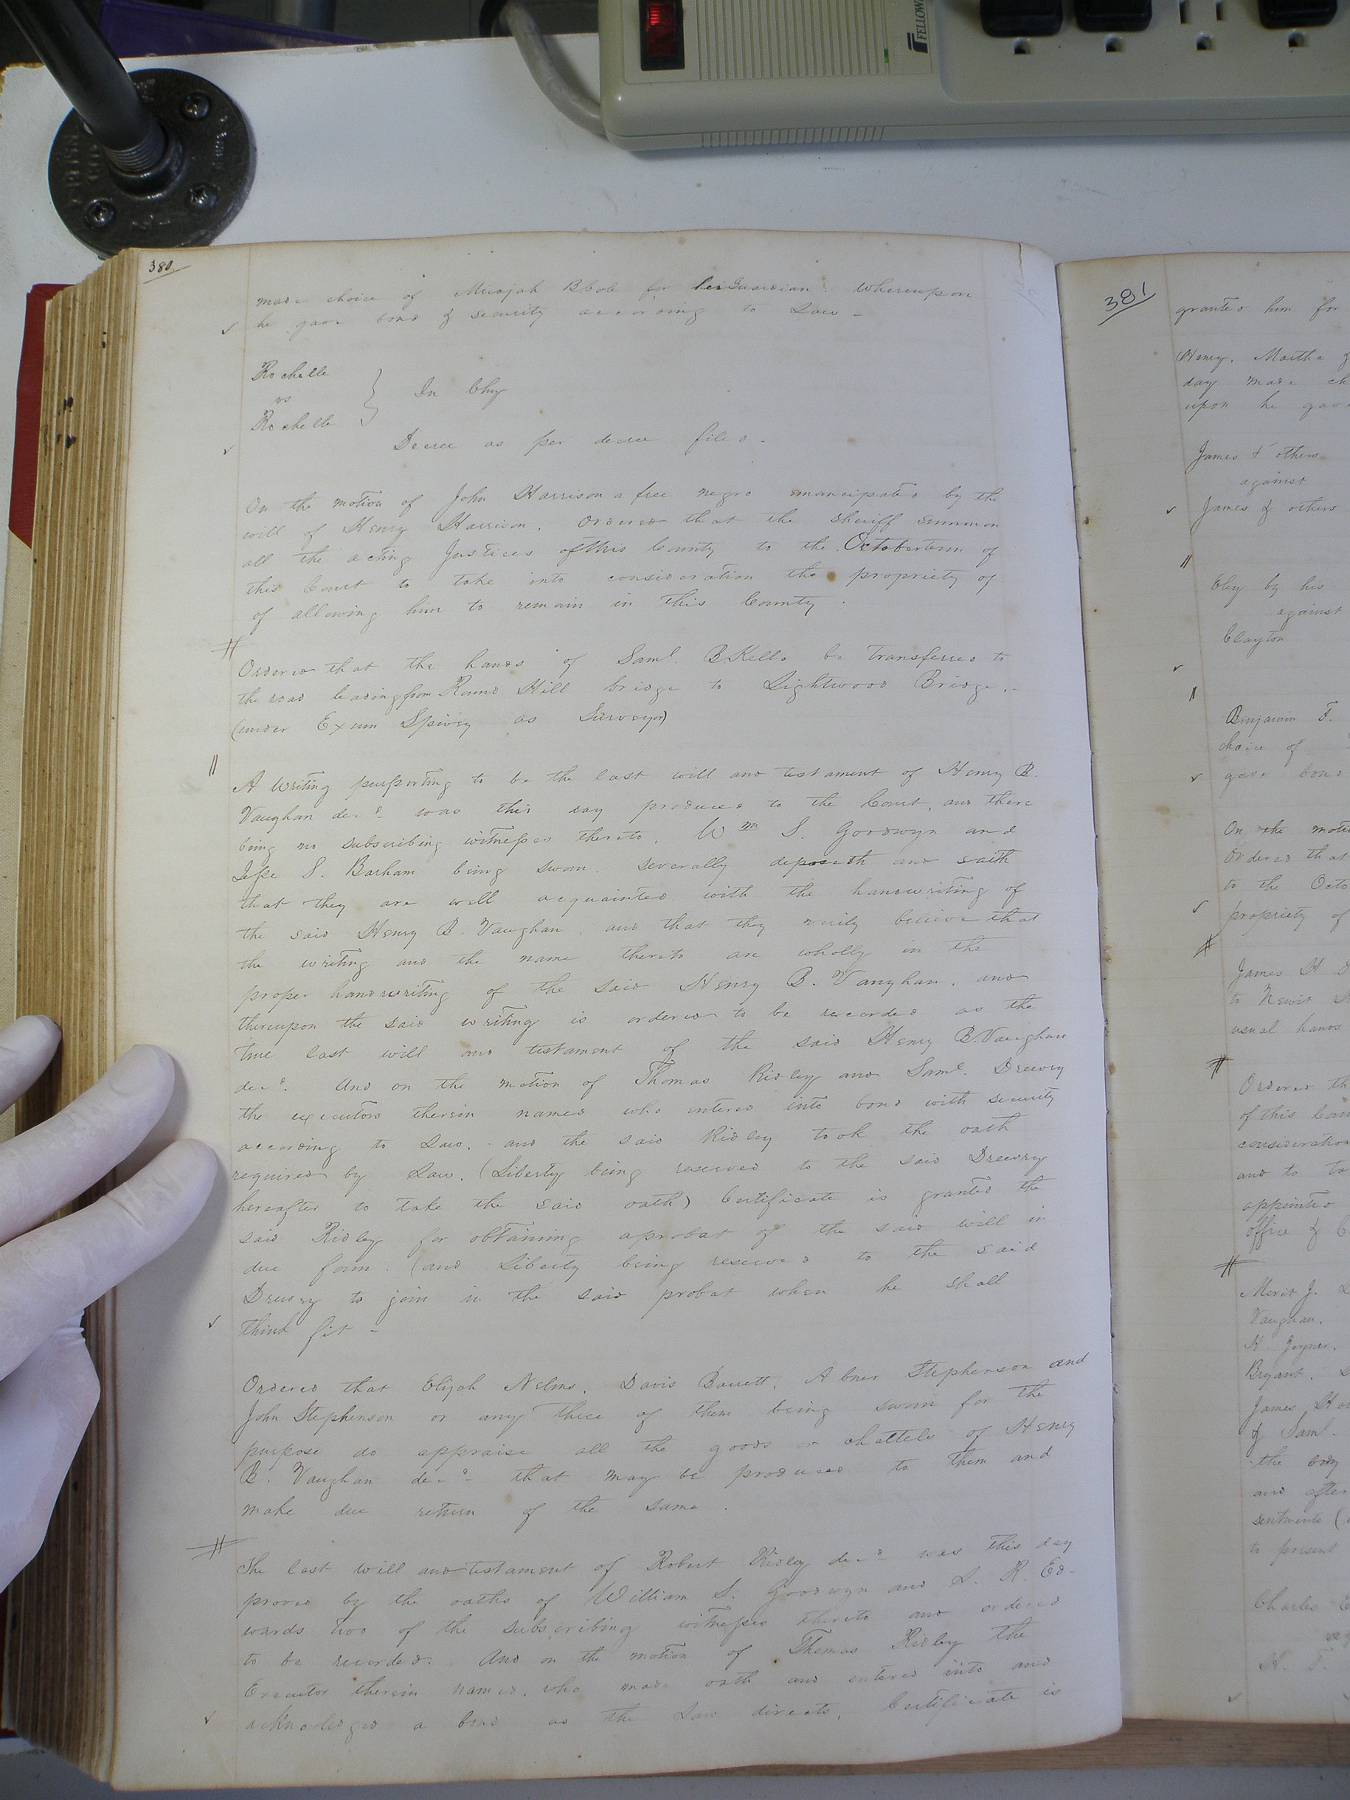 380
made choice of Micajah Bbob for her Guardian whereupon
he gave bond & security according to Law -
Rochelle
vs
Rochelle
In Chy
Decree as per decree filed.
On the motion of John Harrison a free negro emancipated by the
will of Henry Harrison. Ordered that the sheriff summon
all the acting Justices of this County to the October term of
this Court to take into consideration the propriety of
of allowing him to remain in this County.
Ordered that the hands of Saml. B Kello be transferred to
the road leading from Round Hill bridge to Lightwood Bridge.
(under Exum Spivey as Surveyor)
A Writing purporting to be the last will and testament of Henry B.
Vaughan decd. was this day produced to the Court, and there
being no subscribing witnesses thereto, Wm S. Goodwyn and
Jesse S. Barham being sworn severally deposeth and saith
that they are well acquainted with the handwriting of
the said Henry B. Vaughan and that they verily believe that
the writing and the name thereto are wholly in the
proper handwriting of the said Henry B. Vaughan, and
thereupon the said writing is ordered to be recorded as the
true last will and testament of the said Henry B. Vaughan
decd. And on the motion of Thomas Ridley and Saml. Drewry
the executors therein named who entered into bond with security
according to Law, and the said Ridley took the oath
required by Law, (Liberty being reserved to the said Drewry
hereafter to take the said oath) Certificate is granted the
said Ridley for obtaining a probat of the said will in
due form. (and Liberty being reserved to the said
Drewry to join in the said probat when he shall
think fit -
Ordered that Elijah Nelms, Davis Barrett, Abner Stephenson and
John Stephenson or any three of them being sworn for the
purpose do appraise all the goods or chattels of Henry
B. Vaughan decd. that may be produced to them and
make due return of the same.
The last will and testament of Robert Ridley decd. was this day
proved by the oaths of William S. Goodwyn and A. R. Ed-
wards two of the subscribing witnesses thereto and ordered
to be recorded. And on the motion of Thomas Ridley the
Executor therein named, who made oath and entered into and
acknowledged a bond as the Law directs, Certificate is
381
granted him for
Henry, Martha &
day made ch
upon he gave
James & others
against
James & others
Eley by his
against
Clayton
Benjamin F.
choice of
gave bond
On the moti
Ordered that
to the Octo
propriety of
James H
to
usual hands
Ordered th
of this Coun
consideration
and to ta
appointed
office &
Merit J.
Vaughan,
Joyner,
Bryant,
James
of Saml.
the body
and after
sentments (
to present
Charles
FELLOW